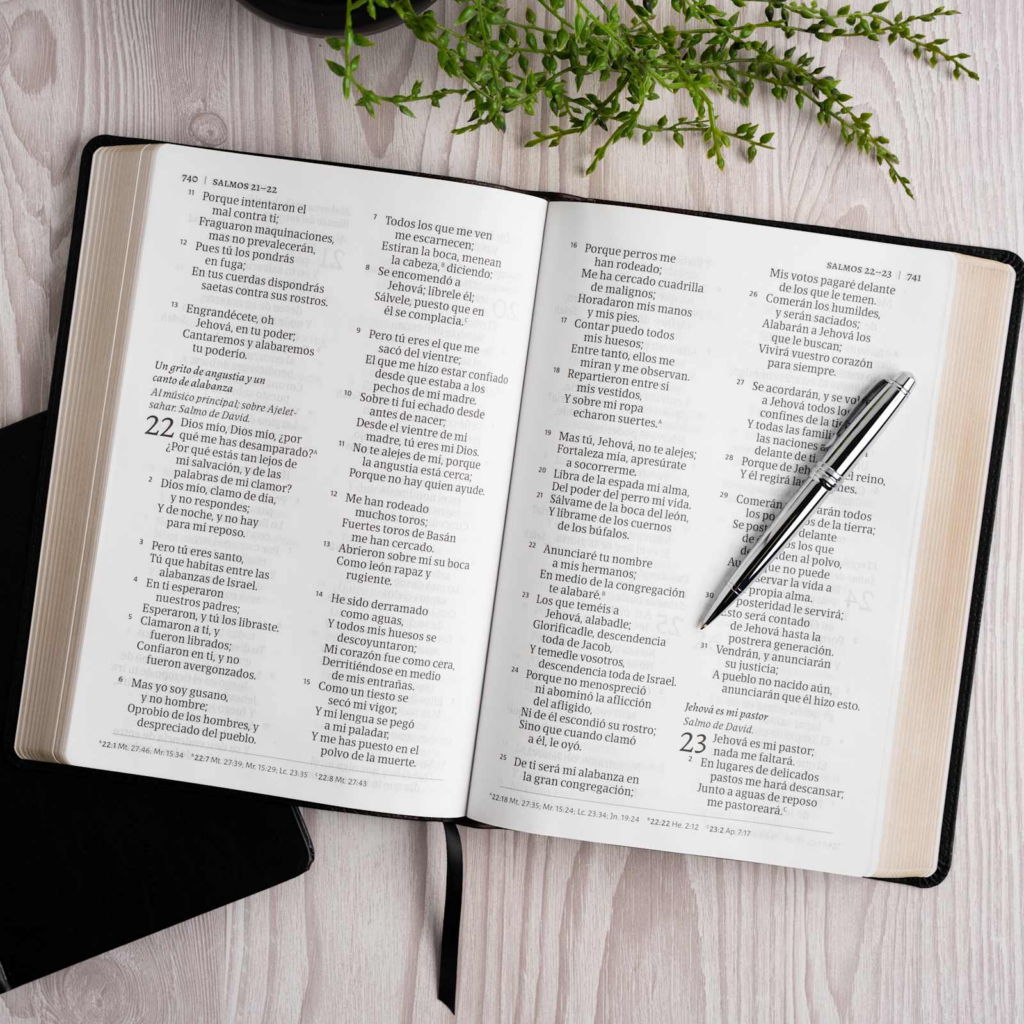 740 | SALMOS 21–22
11 Porque intentaron el
mal contra ti;
Fraguaron maquinaciones,
mas no prevalecerán,
12 Pues tú los pondrás
en fuga;
En tus cuerdas dispondrás
saetas contra sus rostros.
13 Engrandécete, oh
Jehová, en tu poder;
Cantaremos y alabaremos
tu poderío.
Un grito de angustia y un
canto de alabanza
Al músico principal; sobre Ajelet-
sahar. Salmo de David.
22 Dios mío, Dios mío, ¿por
qué me has desamparado?ᴬ
¿Por qué estás tan lejos de
mi salvación, y de las
palabras de mi clamor?
2 Dios mío, clamo de día,
y no respondes;
Y de noche, y no hay
para mí reposo.
3 Pero tú eres santo,
Tú que habitas entre las
alabanzas de Israel.
4 En ti esperaron
nuestros padres;
Esperaron, y tú los libraste.
5 Clamaron a ti, y
fueron librados;
Confiaron en ti, y no
fueron avergonzados.
6 Mas yo soy gusano,
y no hombre;
Oprobio de los hombres, y
despreciado del pueblo.
7 Todos los que me ven
me escarnecen;
Estiran la boca, menean
la cabeza,ᴮ diciendo;
8 Se encomendó a
Jehová; líbrele él;
Sálvele, puesto que en
él se complacía.ᶜ
9 Pero tú eres el que me
sacó del vientre;
El que me hizo estar confiado
desde que estaba a los
pechos de mi madre.
10 Sobre ti fui echado desde
antes de nacer;
Desde el vientre de mi
madre, tú eres mi Dios.
11 No te alejes de mí, porque
la angustia está cerca;
Porque no hay quien ayude.
12 Me han rodeado
muchos toros;
Fuertes toros de Basán
me han cercado.
13 Abrieron sobre mí su boca
Como león rapaz y
rugiente.
14 He sido derramado
como aguas,
Y todos mis huesos se
descoyuntaron;
Mi corazón fue como cera,
Derritiéndose en medio
de mis entrañas.
15 Como un tiesto se
secó mi vigor,
Y mi lengua se pegó
a mi paladar,
Y me has puesto en el
polvo de la muerte.
ᴬ22:1 Mt. 27:46, Mr. 15:34 ᴮ22:7 Mt. 27:39; Mr. 15:29; Lc. 23:35 ᶜ22:8 Mt. 27:43
SALMOS 22–23 | 741
16 Porque perros me
han rodeado;
Me ha cercado cuadrilla
de malignos;
Horadaron mis manos
y mis pies.
17 Contar puedo todos
mis huesos;
Entre tanto, ellos me
miran y me observan.
18 Repartieron entre sí
mis vestidos,
Y sobre mi ropa
echaron suertes.ᴬ
19 Mas tú, Jehová, no te alejes;
Fortaleza mía, apresúrate
a socorrerme.
20 Libra de la espada mi alma,
Del poder del perro mi vida.
21 Sálvame de la boca del león,
Y líbrame de los cuernos
de los búfalos.
22 Anunciaré tu nombre
a mis hermanos;
En medio de la congregación
te alabaré.ᴮ
23 Los que teméis a
Jehová, alabadle;
Glorificadle, descendencia
toda de Jacob,
Y temedle vosotros,
descendencia toda de Israel.
24 Porque no menospreció
ni abominó la aflicción
del afligido,
Ni de él escondió su rostro;
Sino que cuando clamó
a él, le oyó.
25 De ti será mi alabanza en
la gran congregación;
Mis votos pagaré delante
de los que le temen.
26 Comerán los humildes,
y serán saciados;
Alabarán a Jehová los
que le buscan;
Vivirá vuestro corazón
para siempre.
27 Se acordarán, y se
a Jehová todos los
confines de la
Y todas las
las naciones
delante de
28 Porque de el reino,
Y él regirá las
29 Comerán todos
los de la tierra;
Se delante
de los que
al polvo,
que no puede
la vida a
propia alma.
30 posteridad le servirá;
será contado
de Jehová hasta la
postrera generación.
31 Vendrán, y anunciarán
su justicia;
A pueblo no nacido aún,
anunciarán que él hizo esto.
Jehová es mi pastor
Salmo de David.
23 Jehová es mi pastor;
nada me faltará.
2 En lugares de delicados
pastos me hará descansar;
Junto a aguas de reposo
me pastoreará.ᶜ
ᴬ22:18 Mt. 27:35; Mr. 15:24; Lc. 23:34; Jn. 19:24 ᴮ22:22 He. 2:12 ᶜ23:2 Ap. 7:17